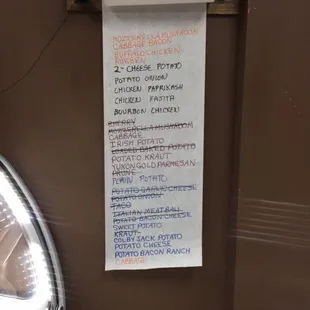 MOZZARELLA MUSHROOM
CABBAGE BACON
BUFFALO CHICKEN
REUBEN
2-CHEESE POTATO
POTATO ONION
CHICKEN PAPRIKASH
CHICKEN FAJITA
BOURBON CHICKEN
CHERRY
MUSHROOM
CABBAGE
IRISH POTATO
LOADED BAKED POTATO
POTATO KRAUT
YUKON GOLD PARMESAN
PRUNE
PLAIN POTATO
POTATO GARLIC CHEESE
POTATO ONION
TACO
ITALIAN MEATBALL
POTATO BACON CHEESE
SWEET POTATO
KRAUT
COLBY JACK POTATO
POTATO CHEESE
POTATO BACON RANCH
CABBAGE